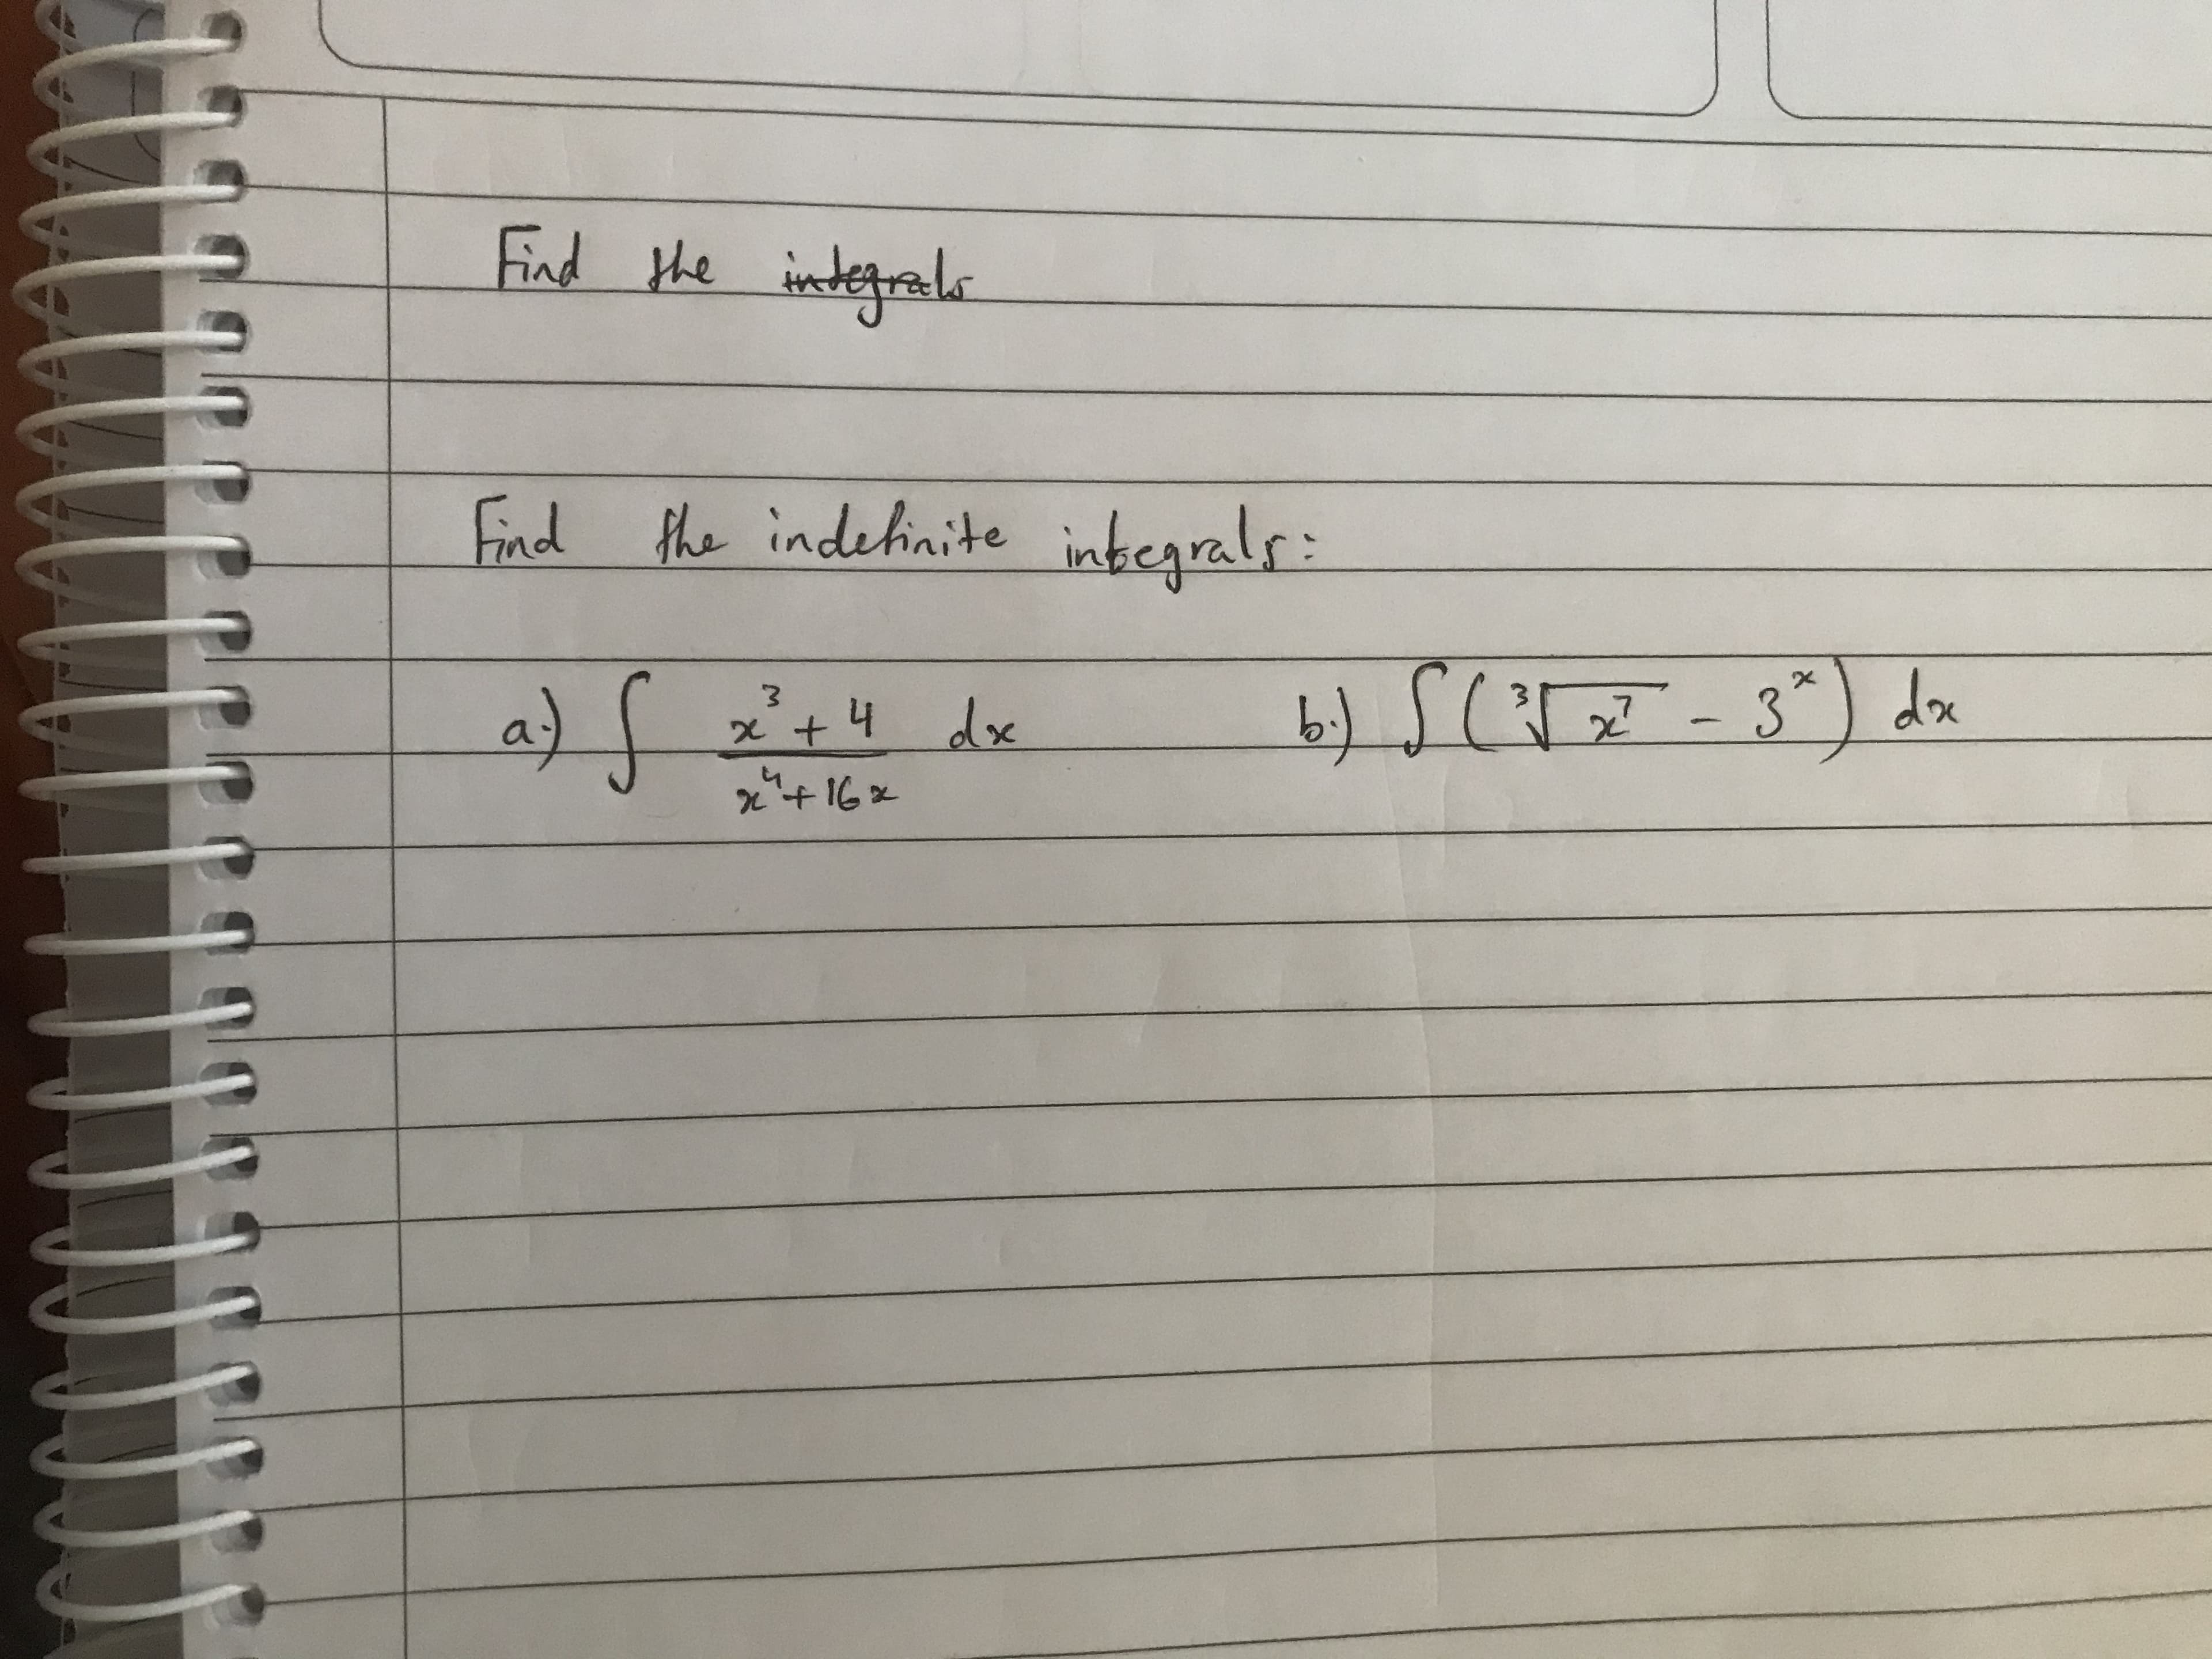 Find the integrals
Find the indefinite integrals:
a.) ∫ (x³ + 4)/(x⁴ + 16x) dx b.) ∫ (∛(x⁷) - 3ˣ) dx